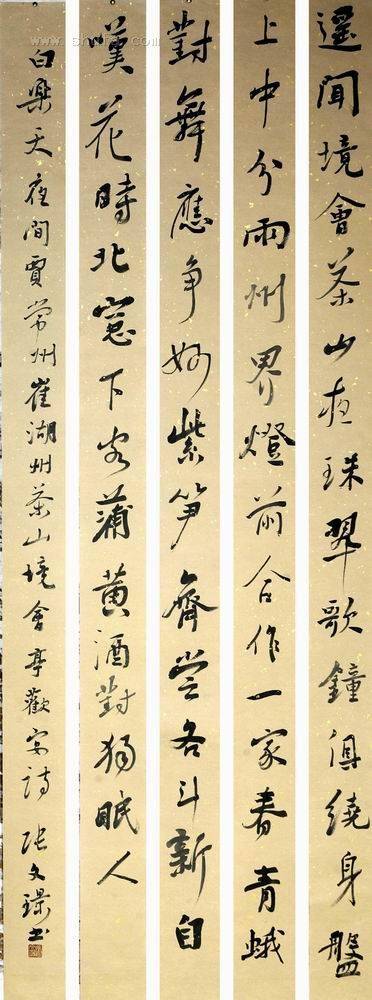 遥聞境會茶山夜珠翠歌鐘俱繞身盤
上中分兩州界燈前合作一家春青蛾
對舞應争妙紫笋齊嘗各斗新自
嘆花時北窓下蒲黄酒對獨眠人
白樂天夜聞賈常州崔湖州茶山境會亭歡宴詩 張文書